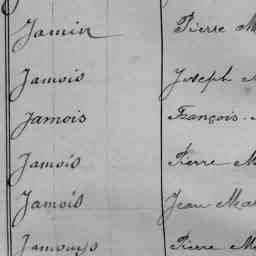 Jamin Pierre M
Jamois Joseph
Jamois François
Jamois Pierre M
Jamois Jean Mar
Jamouys Pierre M